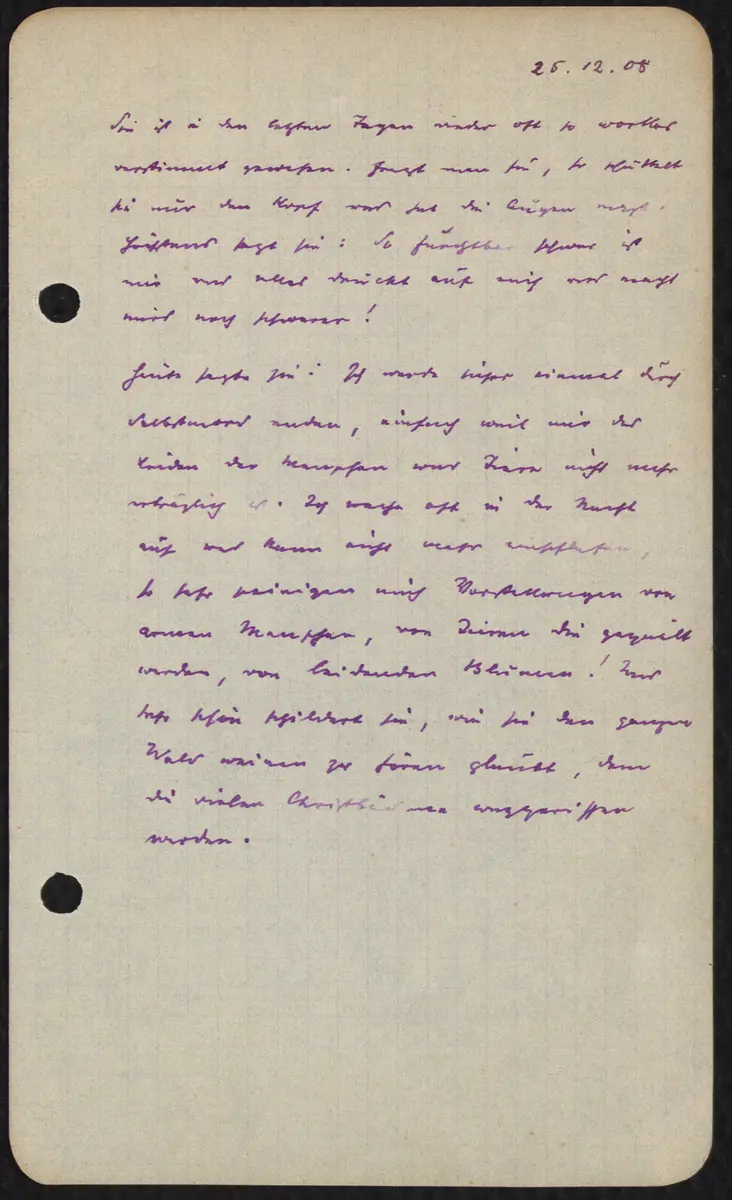 25.12.08
Sie ist in den letzten Tagen wieder oft so wortlos
verstimmt gewesen. Fragt man sie, so schüttelt
sie nur den Kopf und hat die Augen nass.
Höchstens sagt sie: So furchtbar schwer ist
mir und alles drückt auf mich und macht
mirs noch schwerer!
Heute sagte sie: Ich werde sicher einmal durch
Selbstmord enden, einfach weil mir das
Leiden der Menschen und Tiere nicht mehr
erträglich ist. Ich wache oft in der Nacht
auf und kann nicht mehr einschlafen,
so sehr peinigen mich Vorstellungen von
armen Menschen, von Tieren die gequält
werden, von leidenden Blumen! Und
sehr schön schildert sie, wie sie den ganzen
Wald weinen zu hören glaubt, dem
die vielen Christbäume weggerissen
werden.